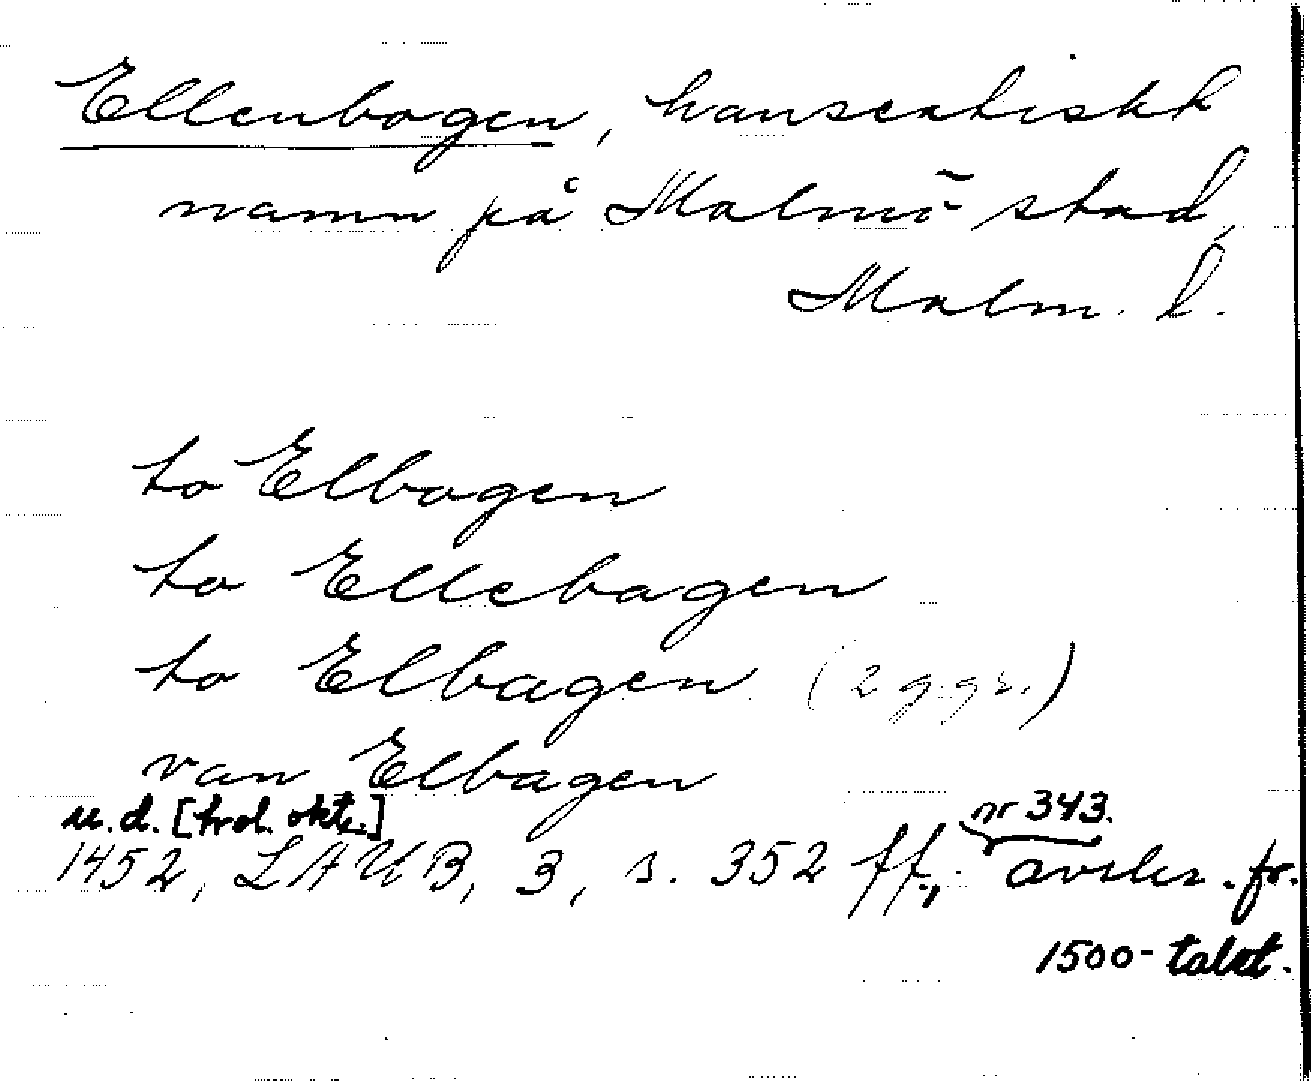 Ellenbogen, hanseatiskt
namn på Malmö stad,
Malm. l.
to Elbogen
to Ellebagen
to Elbagen (2 ggr.)
van Elbagen
u.d. [trol. okt.]
1452, LAUB, 3, s. 352 ff., nr 343. avskr. fr.
1500-talet.